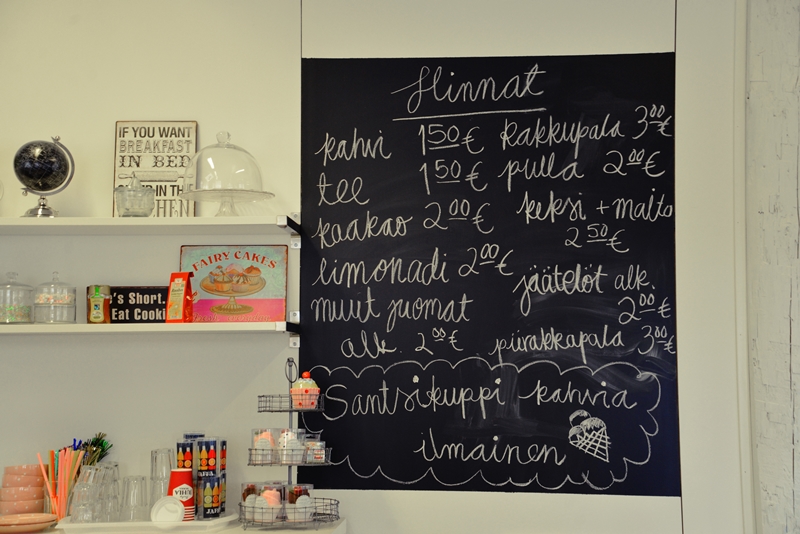 Hinnat
kahvi 1 50 €
tee 1 50 €
kaakao 2 00 €
limonadi 2 00 €
muut juomat
alk. 2 00 €
kakkupala 3 00 €
pulla 2 00 €
keksi + maito
2 50 €
jäätelöt alk.
2 00 €
piirakkapala 3 00 €
Santsikuppi kahvia
ilmainen
IF YOU WANT
BREAKFAST
IN BED
IN THE
FAIRY CAKES
's Short.
Eat Cooki
JAFFA